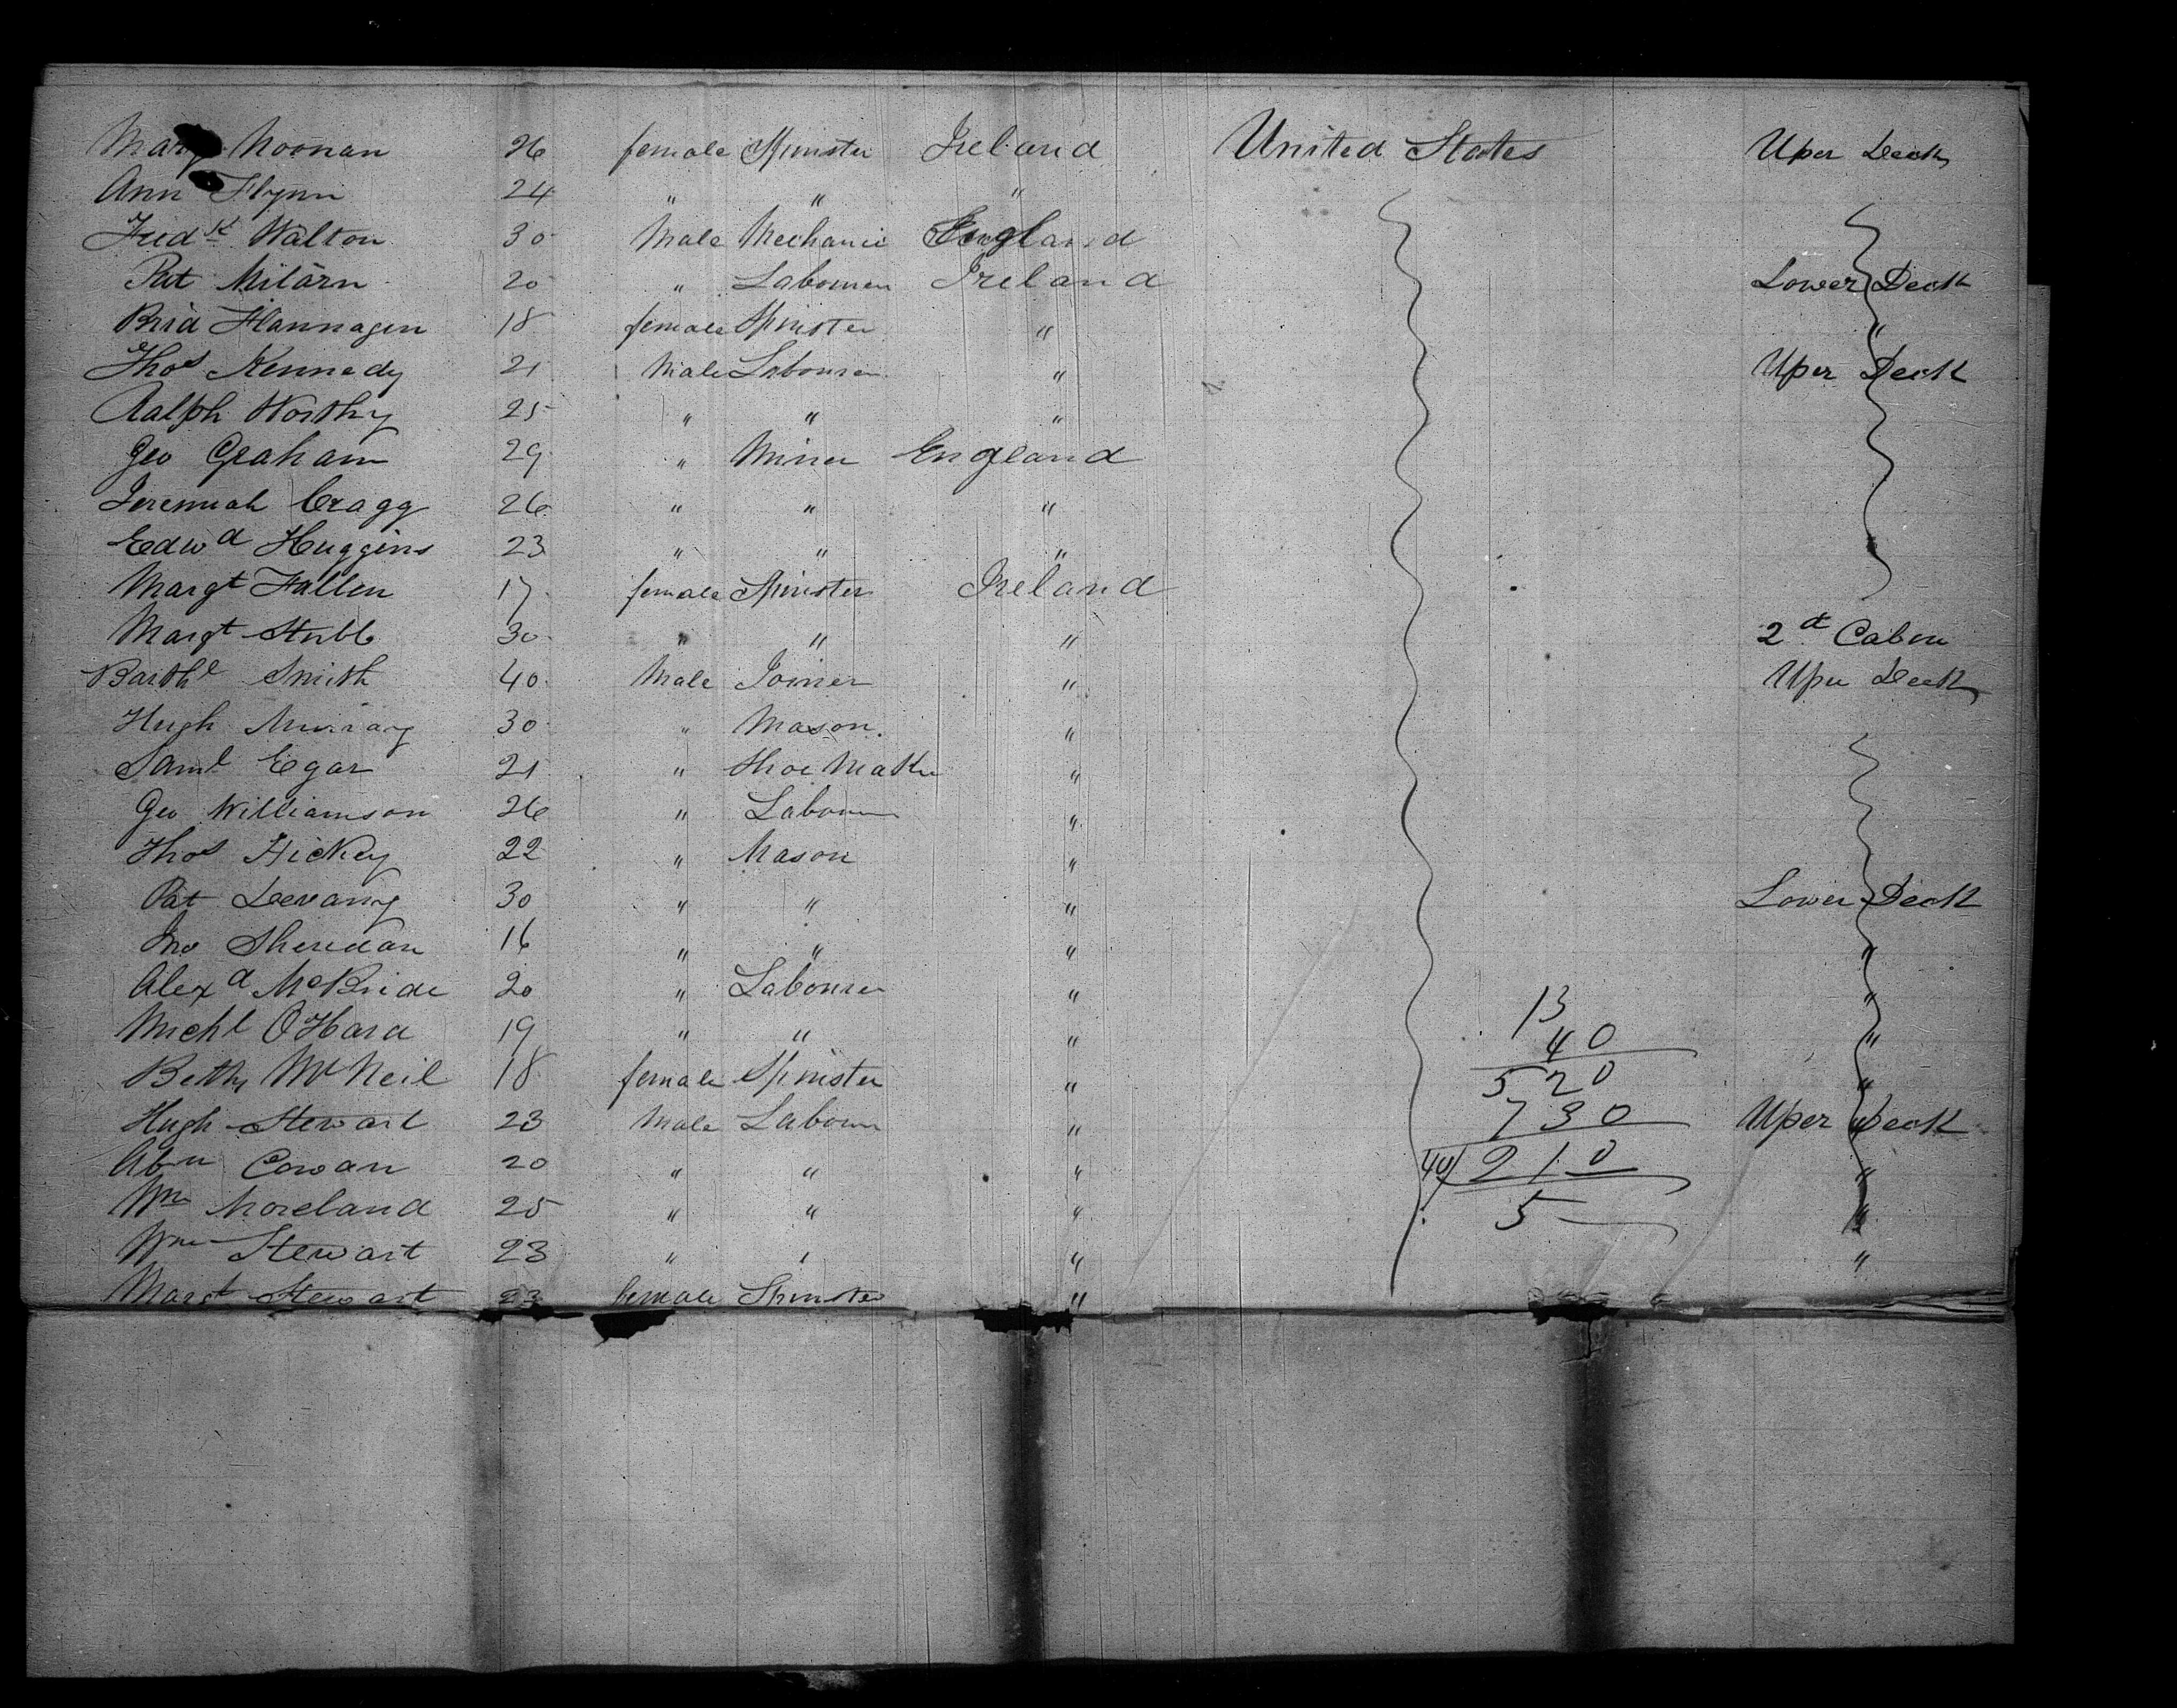 Mary Noonan 26 female Spinster Ireland United States Uper Deck
Ann Flynn 24 " " "
Fredk Walton 30 Male Mechanic England
Pat 20 " Labourer Ireland Lower Deck
Brid Flannagen 18 female Spinster " "
Thos Kennedy 21 Male Labourer " Uper Deck
Ralph Worthy 25 " " "
Geo Graham 29 " Miner England
Jeremiah Cragg 26 " " "
Edwd Huggins 23 " " "
Margt Fallen 17 female Spinster Ireland
Margt Stubb 30 " " " 2d Cabin
Barthl Smith 40 Male Joiner " Uper Deck
Hugh Murray 30 " Mason. "
Saml Egar 21 " Shoe Maker "
Geo Williamson 26 " Labourer "
Thos Hickey 22 " Mason "
Pat Devany 30 " " " Lower Deck
Jno Sheridan 16 " " " "
Alexd McBride 20 " Labourer " "
Michl O'Hara 19 " " " "
Betty McNeil 18 female Spinster " "
Hugh Stewart 23 Male Labourer " Uper Deck
Abm Cowan 20 " " " "
Wm Moreland 25 " " " "
Wm Stewart 23 " " " "
Margt Stewart 23 female Spinster "
13
40
520
730
40) 210
5